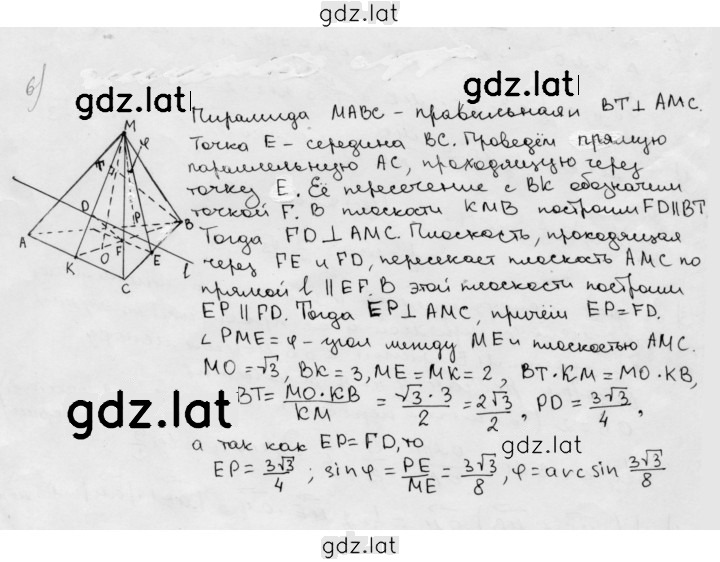 gdz.lat
б)
gdz.lat
gdz.lat
Пирамида МАВС – правильная и ВТ⊥АМС.
Точка Е – середина ВС. Проведём прямую
параллельную АС, проходящую через
точку Е. Её пересечение с ВК обозначим
точкой F. В плоскости КМВ построим FD∥ВТ
Тогда FD⊥АМС. Плоскость, проходящая
через FE и FD, пересекает плоскость АМС по
прямой l ∥ EF. В этой плоскости построим
EP ∥ FD. Тогда EP⊥АМС, причём EP=FD.
∠PME=φ – угол между ME и плоскостью АМС.
MO=√3, BK=3, ME=MK=2, BT·KM=MO·KB,
BT= MO·KB/KM = √3·3/2 = 2√3/2, PD= 3√3/4,
а так как EP=FD, то
EP= 3√3/4; sinφ= PE/ME = 3√3/8, φ=arcsin 3√3/8
M
φ
T
D
P
B
A
K
O
F
E
C
l
gdz.lat
gdz.lat
gdz.lat